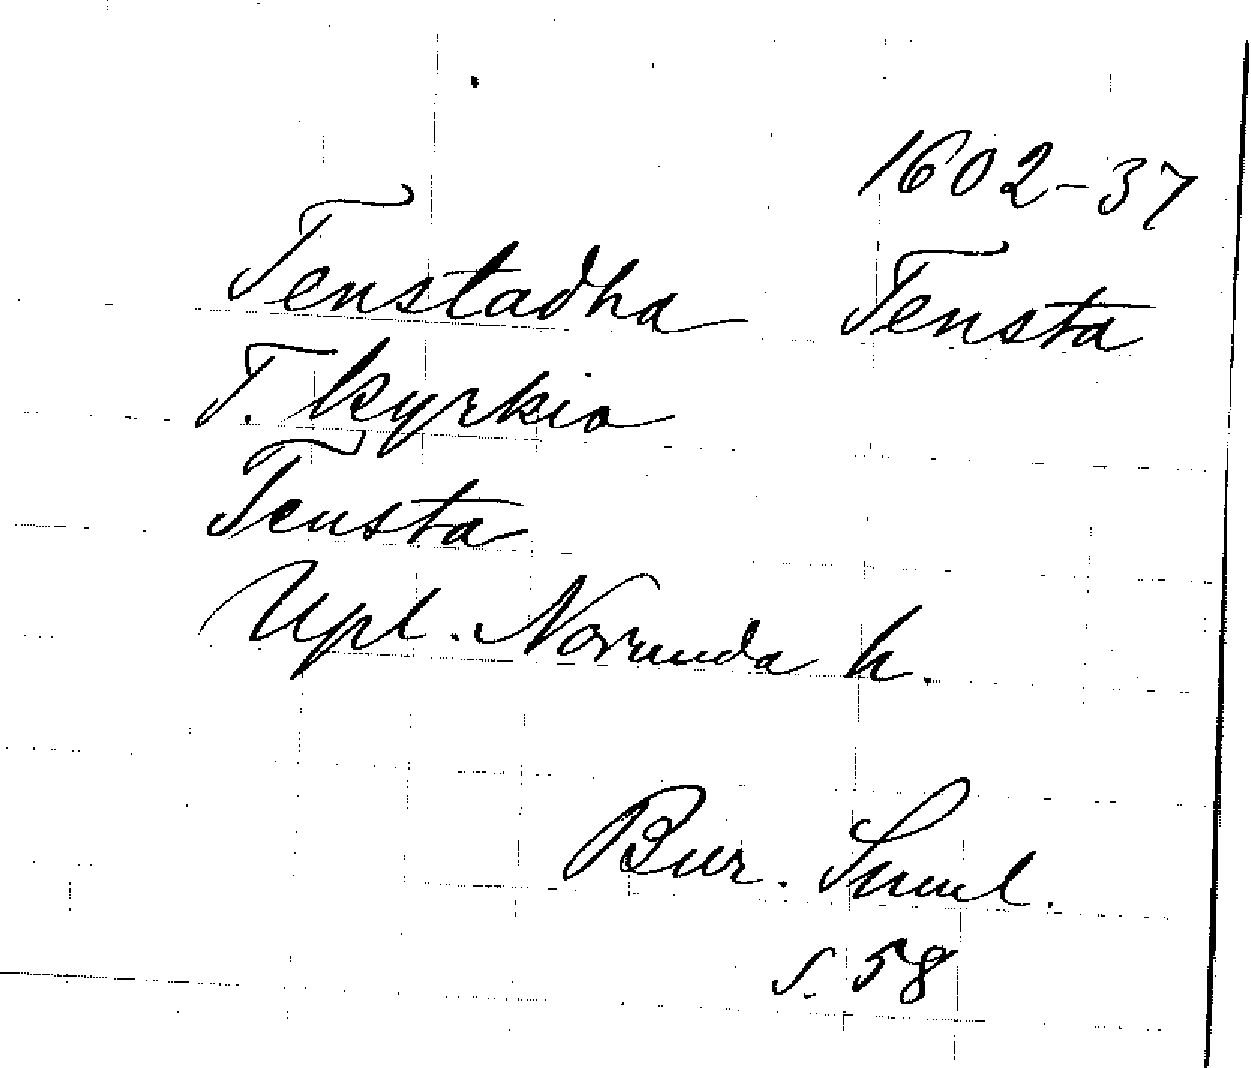 1602-37
Tenstadha Tensta
T. kyrkio
Tensta
Upl. Norunda h.
Bur. Suml.
s. 58